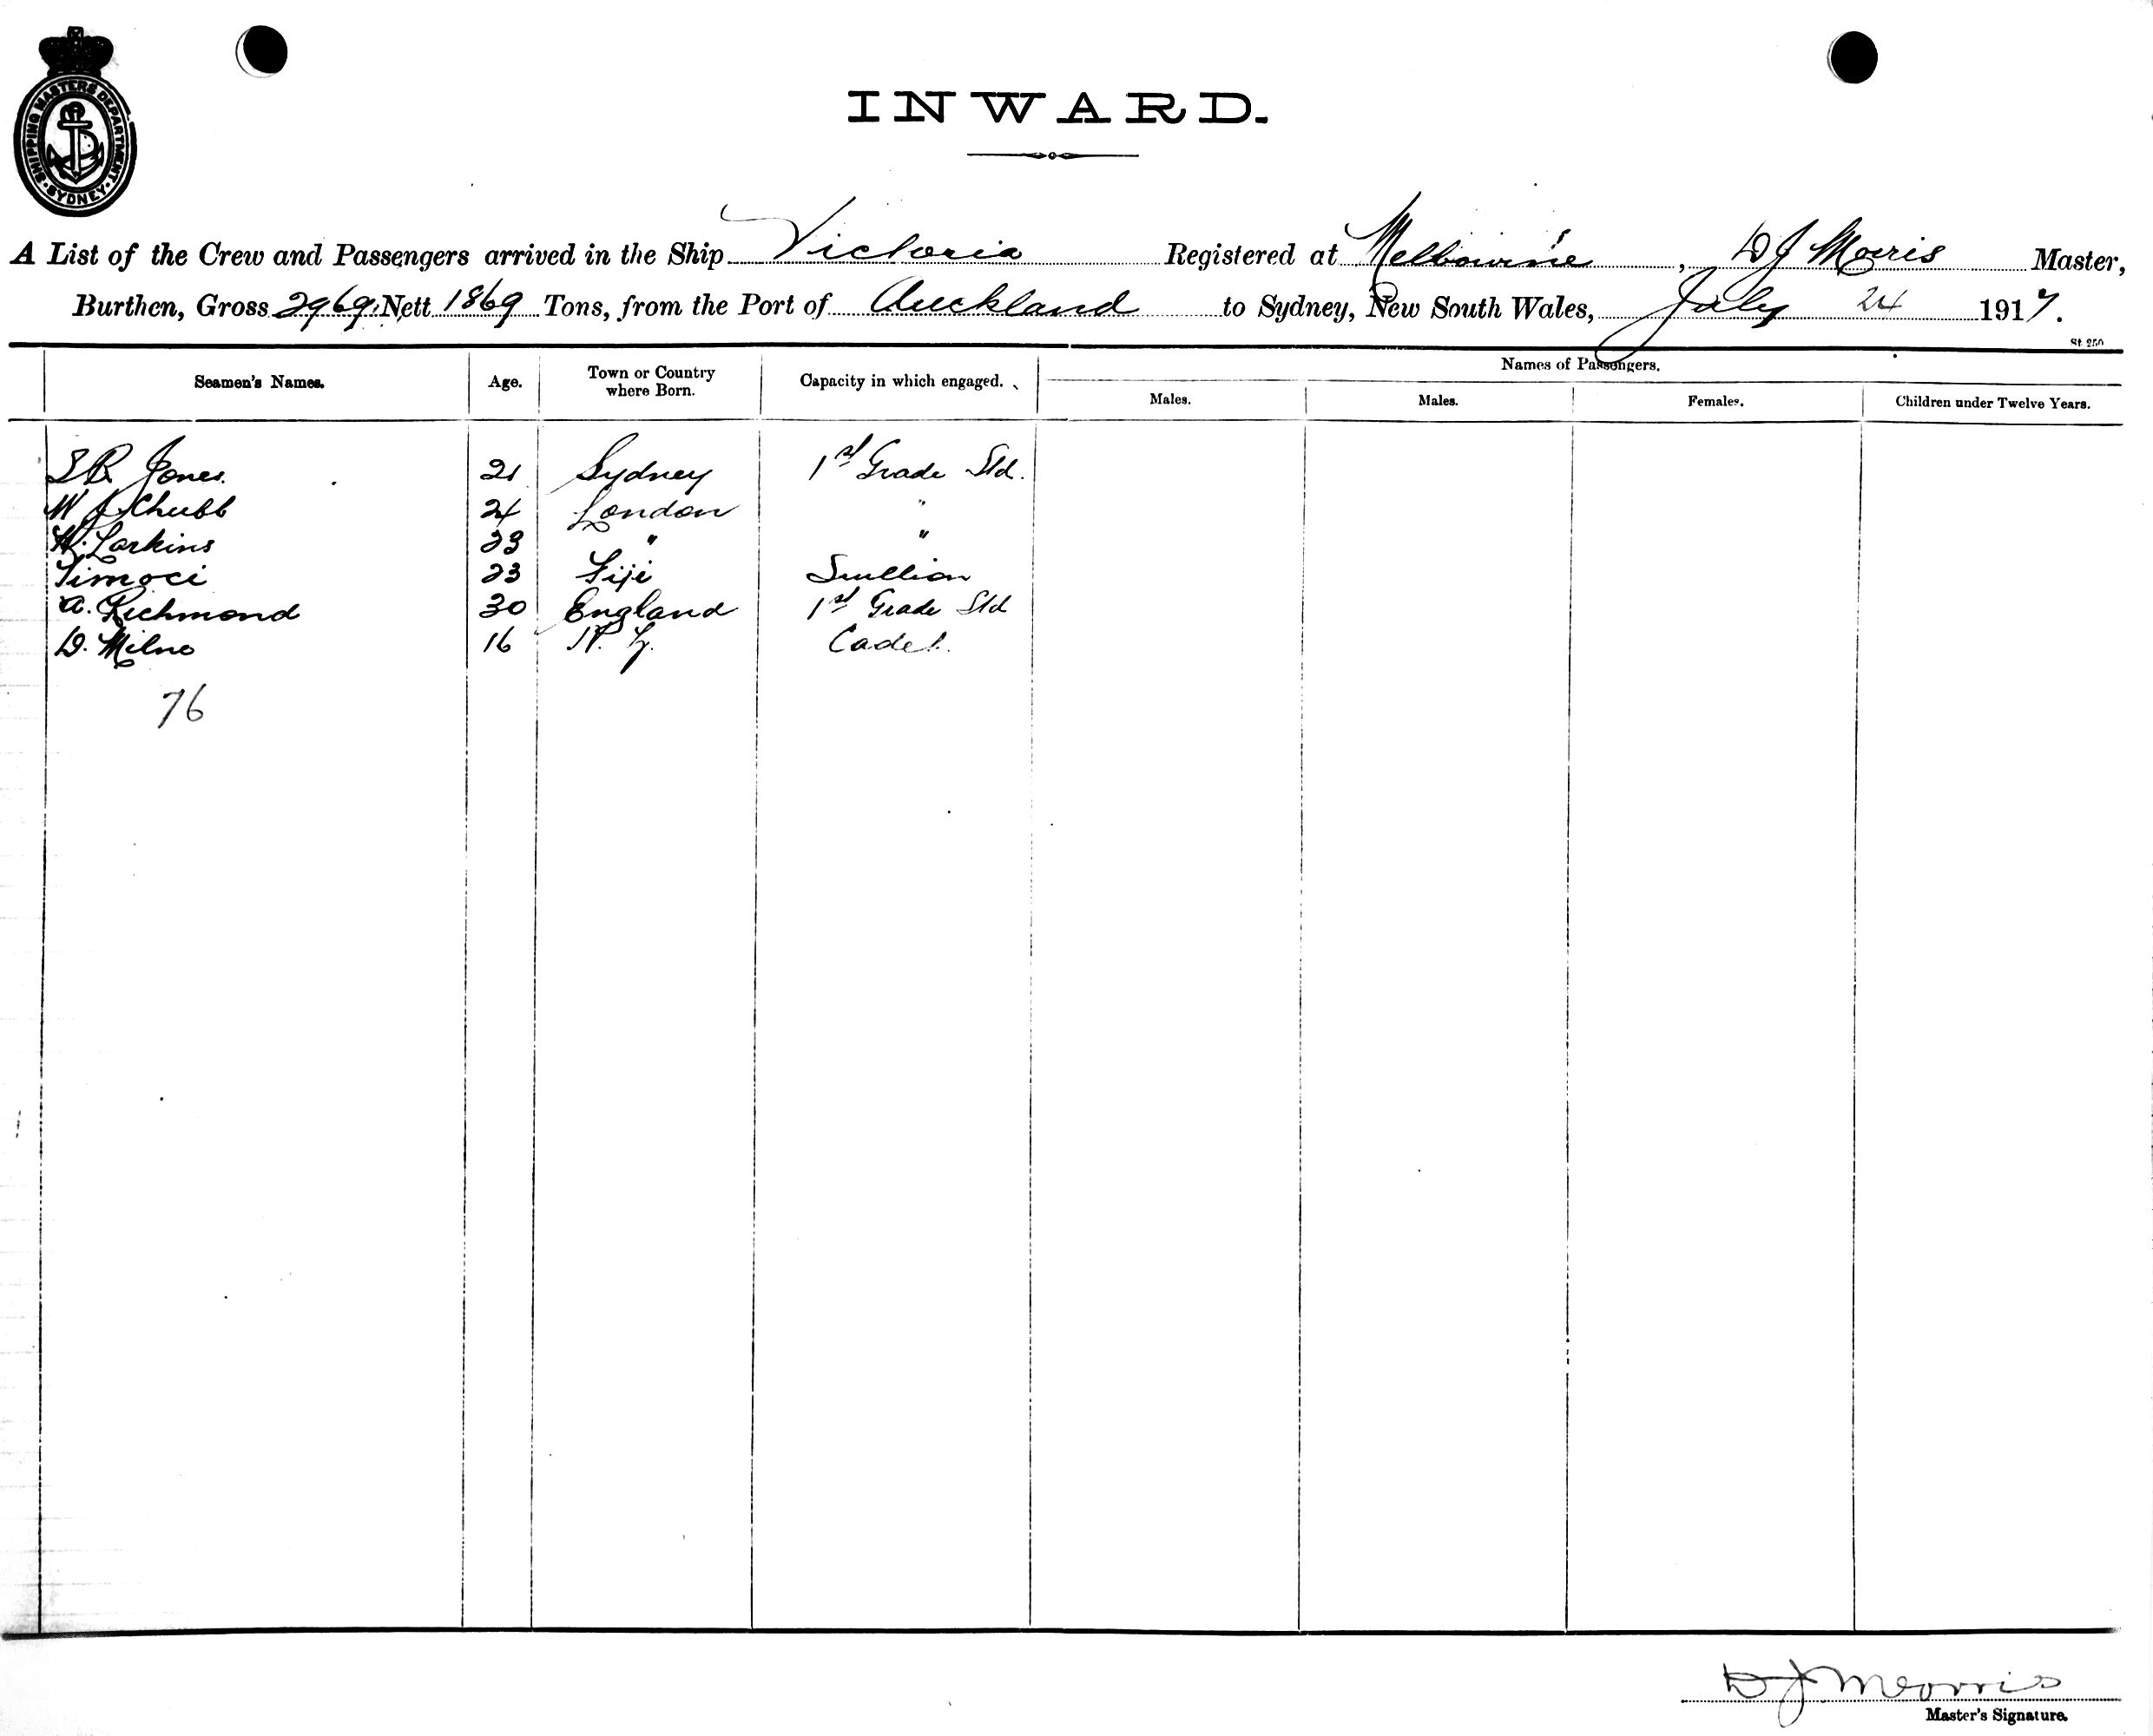 SHIPPING MASTERS DEPARTMENT · SYDNEY ·
INWARD.
A List of the Crew and Passengers arrived in the Ship Victoria Registered at Melbourne, D J Morris Master,
Burthen, Gross 2969 Nett 1869 Tons, from the Port of Auckland to Sydney, New South Wales, July 24 1917.
St 250
Seamen's Names. Age. Town or Country where Born. Capacity in which engaged. Names of Passengers.
Males. Males. Females. Children under Twelve Years.
S R Jones 21 Sydney 1st Grade Std.
W J Chubb 24 London "
W. Larkins 23 " "
Timoci 23 Fiji Scullion
A. Richmond 30 England 1st Grade Std
D. Milne 16 N. Z. Cadet.
76
D J Morris
Master's Signature.